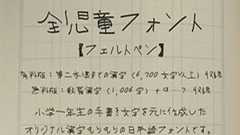 全児童フォント
【フェルトペン】
有料版：第二水準までの漢字（6,700文字以上）収録
無料版：教育漢字（1,006字）+ α 収録
小学一年生の手書き文字を元に作成した
オリジナル漢字もりもりの日本語フォントです。